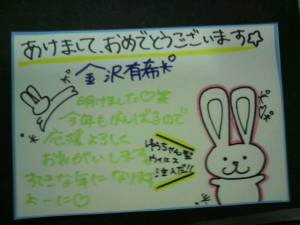 あけまして、おめでとうございます☆
金沢有希
明けました♡笑
今年もがんばるので
応援よろしく
おねがいします
すてきな年になります
よーに♡
ゆうちゃん型
ウイルス
注入だ!!